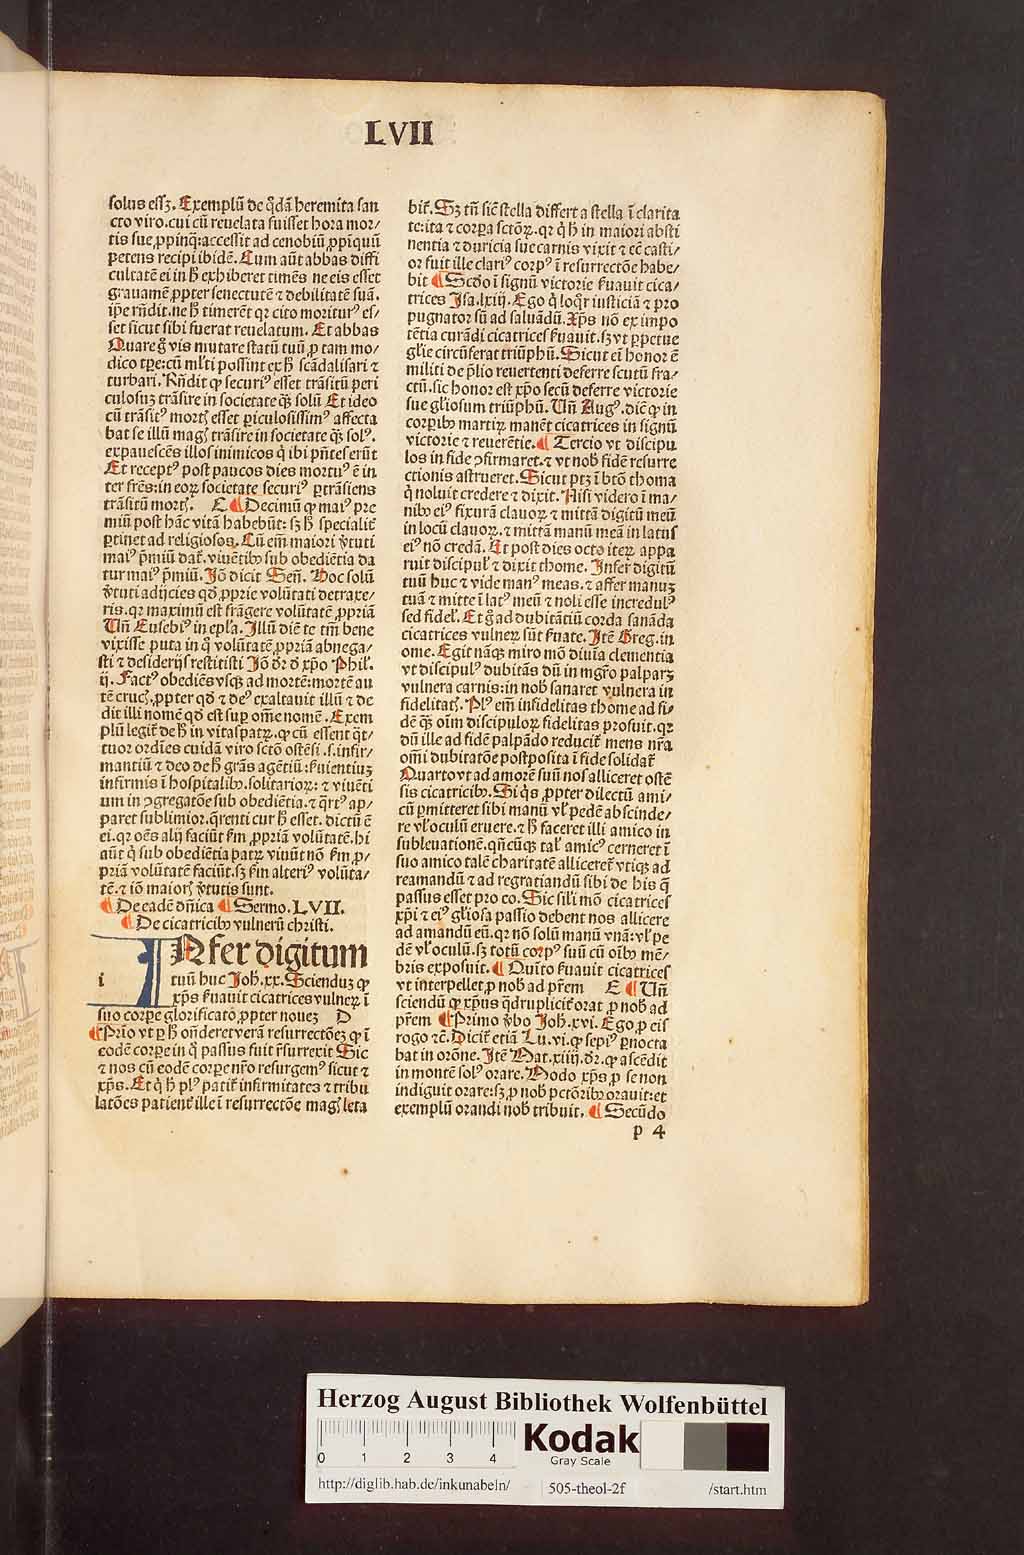 LVII
solus essꝫ. Exemplū de q̄dā heremita san
cto viro. cui cū reuelata fuisset hora mor/
tis sue ꝓpinq: accessit ad cenobiū ꝓpiquū
petens recipi ibidē. Cum aūt abbas diffi
cultatē ei in h̄ exhiberet timēs ne eis esset
grauamē ꝓpter senectutē ⁊ debilitatē suā.
ip̄e rn̄dit. ne h̄ timerēt qꝛ cito moriturꝰ es/
set sicut sibi fuerat reuelatum. Et abbas
Quare g̊ vis mutare statū tuū ꝓ tam mo/
dico tꝑe: cū ml̓ti possint ex h̄ scādalisari ⁊
turbari. Rn̄dit ꝙ securiꝰ esset trāsitū peri
culosuꝫ trāsire in societate qꝫ solū Et ideo
cū trāsitꝰ mortꝭ esset ꝑiculosissimꝰ affecta
bat se illū magꝭ trāsire in societate qꝫ solꝰ.
expauescēs illos inimicos q̇ ibi pn̄tes erūt
Et receptꝰ post paucos dies mortuꝰ ē in
ter fr̄es: in eoꝝ societate securiꝰ ꝑtrāsiens
trāsitū mortꝭ. C ¶ Decimū ꝙ maiꝰ pre
miū post hāc vitā habebūt: sꝫ h̄ specialit̓
ꝑtinet ad religiosos. Cū em̄ maiori v̓tuti
maiꝰ p̄miū dat̓. viuētibꝰ sub obediētia da
tur maiꝰ p̄miū. Iō dicit Sen̄. Hoc solū
v̓tuti adijcies qd̓ ꝓprie volūtati detraxe/
ris. qꝛ maximū est frāgere volūtatē ꝓpriā
Un̄ Eusebiꝰ in epl̓a. Illū diē te tm̄ bene
vixisse puta in q̇ volūtatē ꝓpriā abnega/
sti ⁊ desiderijs restitisti Iō dr̄ d̓ xp̄o Phil̓.
ij. Factꝰ obediēs vsqꝫ ad mortē: mortē au
tē crucꝭ. ꝓpter qd̓ ⁊ deꝰ exaltauit illū ⁊ de
dit illi nomē qd̓ est suꝑ om̄e nomē. Exem
plū legit̓ de h̄ in vitaspatꝝ. ꝙ cū essent q̇t/
tuor ordīes cuidā viro sctō ostēsi. s. infir/
mantiū ⁊ deo de h̄ gr̄as agētiū: ẜuientiuꝫ
infirmis ī hospitalibꝰ. solitarioꝝ: ⁊ viuēti
um in ꝯgregatōe sub obediētia. ⁊ q̇rtꝰ ap/
paret sublimior. q̇renti cur h̄ esset. dictū ē
ei. qꝛ oēs alij faciūt ẜm ꝓpriā volūtatē. hi
aūt q̇ sub obediētia patꝝ viuūt nō ẜm ꝓ/
priā volūtatē faciūt. sꝫ ẜm alteriꝰ volūta/
tē. ⁊ iō maiorꝭ v̓tutis sunt.
¶ De eadē dn̄ica ¶ Sermo. LVII.
¶ De cicatricibꝰ vulnerū christi.
i
INfer digitum
tuū huc Joh̄. xx. Sciendum ꝙ
xp̄s ẜuauit cicatrices vulneꝝ ī
suo corꝑe glorificato ꝓpter nouez D
¶ Prīo vt ꝑ h̄ on̄deret verā resurrectōez ꝙ ī
eodē corꝑe in q̇ passus fuit r̓surrexit Sic
⁊ nos cū eodē corꝑe nr̄o resurgemꝰ sicut ⁊
xp̄s. Et q̇ h̄ plꝰ patit̓ infirmitates ⁊ tribu
latōes patient̓ ille ī resurrectōe magꝭ leta
bit̓. Sꝫ tn̄ sic̄ stella differt a stella ī clarita
te: ita ⁊ corꝑa sctōꝝ. qꝛ q̇ h̄ in maiori absti
nentia ⁊ duricia sue carnis vixit ⁊ ec̄ casti/
or fuit ille clariꝰ corpꝰ ī resurrectōe habe/
bit ¶ Scd̓o ī signū victorie ẜuauit cica/
trices Isa. lxiij. Ego q̇ loq̇r iusticiā ⁊ pro
pugnator sū ad saluādū. Xp̄s nō ex impo
tētia curādi cicatrices ẜuauit. sꝫ vt ꝑpetue
gl̓ie circūferat triūphū. Sicut ei honor ē
militi de p̄lio reuertenti deferre scutū fra/
ctū. sic honor est xp̄o secū deferre victorie
sue gl̓iosum triūphū. Un̄ Augꝰ. diē ꝙ in
corꝑibꝰ martiꝝ manēt cicatrices in signū
victorie ⁊ reuerētie. ¶ Tercio vt discipu
los in fide ꝯfirmaret. ⁊ vt nob̄ fidē resurre
ctionis astrueret. Sicut ptꝫ ī btō thoma
q̇ noluit credere ⁊ dixit. Nisi videro ī ma/
nibꝰ eiꝰ fixurā clauoꝝ ⁊ mittā digitū meū
in locū clauoꝝ. ⁊ mittā manū meā in latus
eiꝰ nō credā. Et post dies octo iteꝝ appa
ruit discipul̓ ⁊ dixit thome. Infer digitū
tuū huc ⁊ vide manꝰ meas. ⁊ affer manuꝫ
tuā ⁊ mitte ī latꝰ meū ⁊ noli esse increduľꝰ
sed fidel̓. Et g̊ ad dubitātiū corda sanāda
cicatrices vulneꝝ sūt ẜuate. Itē Greg. in
ome. Egit nāqꝫ miro mō diuīa clementia
vt discipulꝰ dubitās dū in mgr̄o palparꝫ
vulnera carnis: in nob̄ sanaret vulnera in
fidelitatꝭ. Plꝰ em̄ infidelitas thome ad fi/
dē qꝫ oīm discipuloꝝ fidelitas profuit. qꝛ
dū ille ad fidē palpādo reducit̓ mens nr̄a
om̄i dubitatōe postposita ī fide solidat̓
Quarto vt ad amorē suū nos alliceret ostē
sis cicatricibꝰ. Si q̇s ꝓpter dilectū ami/
cū ꝑmitteret sibi manū vl̓ pedē abscinde/
re vl̓ oculū eruere. ⁊ h̄ faceret illi amico in
subleuationē. qn̄cūqꝫ tal̓ amicꝰ cerneret ī
suo amico talē charitatē alliceret̓ vtiqꝫ ad
reamandū ⁊ ad regratiandū sibi de his q̄
passus esset pro eo. Sic sili mō cicatrices
xp̄i ⁊ eiꝰ gl̓iosa passio debent nos allicere
ad amandū eū. qꝛ nō solū manū vnā: vl̓ pe
dē vl̓ oculū. sꝫ totū corpꝰ suū cū oībꝰ mē/
bris exposuit. ¶ Quīto ẜuauit cicatrices
vt interpellet ꝓ nob̄ ad pr̄em E ¶ Un̄
sciendū ꝙ xp̄us q̇druplicit̓ orat ꝓ nob̄ ad
pr̄em ¶ Primo v̓bo Joh̄. xvi. Ego ꝓ eis
rogo ⁊c̄. Dicit̓ etiā Lu. vi. ꝙ sepiꝰ ꝑnocta
bat in orōne. Itē Mat. xiiij. dr̄. ꝙ ascēdit
in montē solꝰ orare. Modo xp̄s ꝓ se non
indiguit orare: sꝫ ꝓ nob̄ pctōribꝰ orauit: et
exemplū orandi nob̄ tribuit. ¶ Secūdo
p 4
Herzog August Bibliothek Wolfenbüttel
0 1 2 3 4
Kodak
Gray Scale
http://diglib.hab.de/inkunabeln/ 505-theol-2f /start.htm